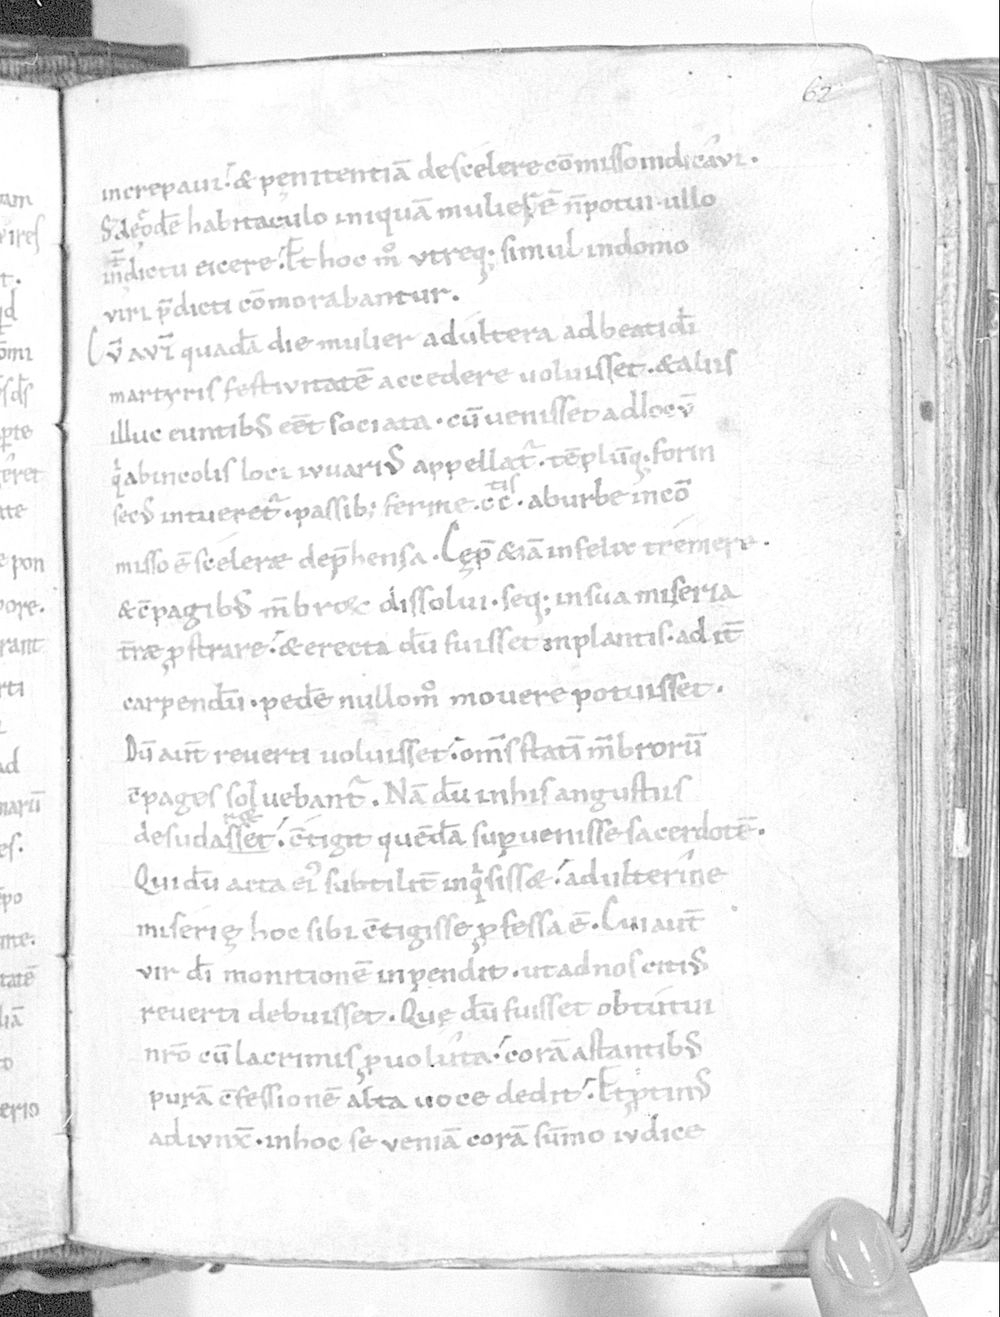 62
increpaui. & penitentiā descelere cōmisso indicaui.
S; de eodē habitaculo iniquā muliere n̄ potui ullo
indictu eicere. Et hoc m̊ vtreq; simul indomo
viri p̄dicti cōmorabantur.
Cū aut̄ quadā die mulier adultera ad beati dī
martyris festiuitatē accedere uoluisset. & aliis
illuc euntib; eēt sociata. cū uenisset ad locū
q' ab incolis loci iuuari; appellat̄. tēplūq; forin
sec; intueret̄. passib; ferme .cc. tis ab urbe in cō
misso ē scelere dep̄hensa. Cęp̄ & iā infelix tremere.
& c̄pagib; m̄bror dissolui. seq; in sua miseria
t̄ræ ꝓstrare. & erecta dū fuisset in plantis. ad it̄
carpendū. pedē nullom̊ movere potuisset.
Dū aut̄ reuerti uoluisset. om̄s statī m̄brorū
c̄pages soluebant̄. Nā dū inhis angustiis
desudasset. c̄tigit quēdā supuenisse sacerdotē.
Qui dū acta ei' subtilit̄ inq'sissæ. adulterine
miserię hoc sibi c̄tigisse ꝓfessa ē. Cui aut̄
vir dī monitionē inpendit. ut ad nos citi;
reuerti debuisset. Quę dū fuisset obtutui
nr̄o cū lacrimis ꝓuoluta. corā astantib;
purā c̄fessionē alta uoce dedit. Et ꝓtin;
adiunx̄. inhoc se veniā corā sūmo iudice